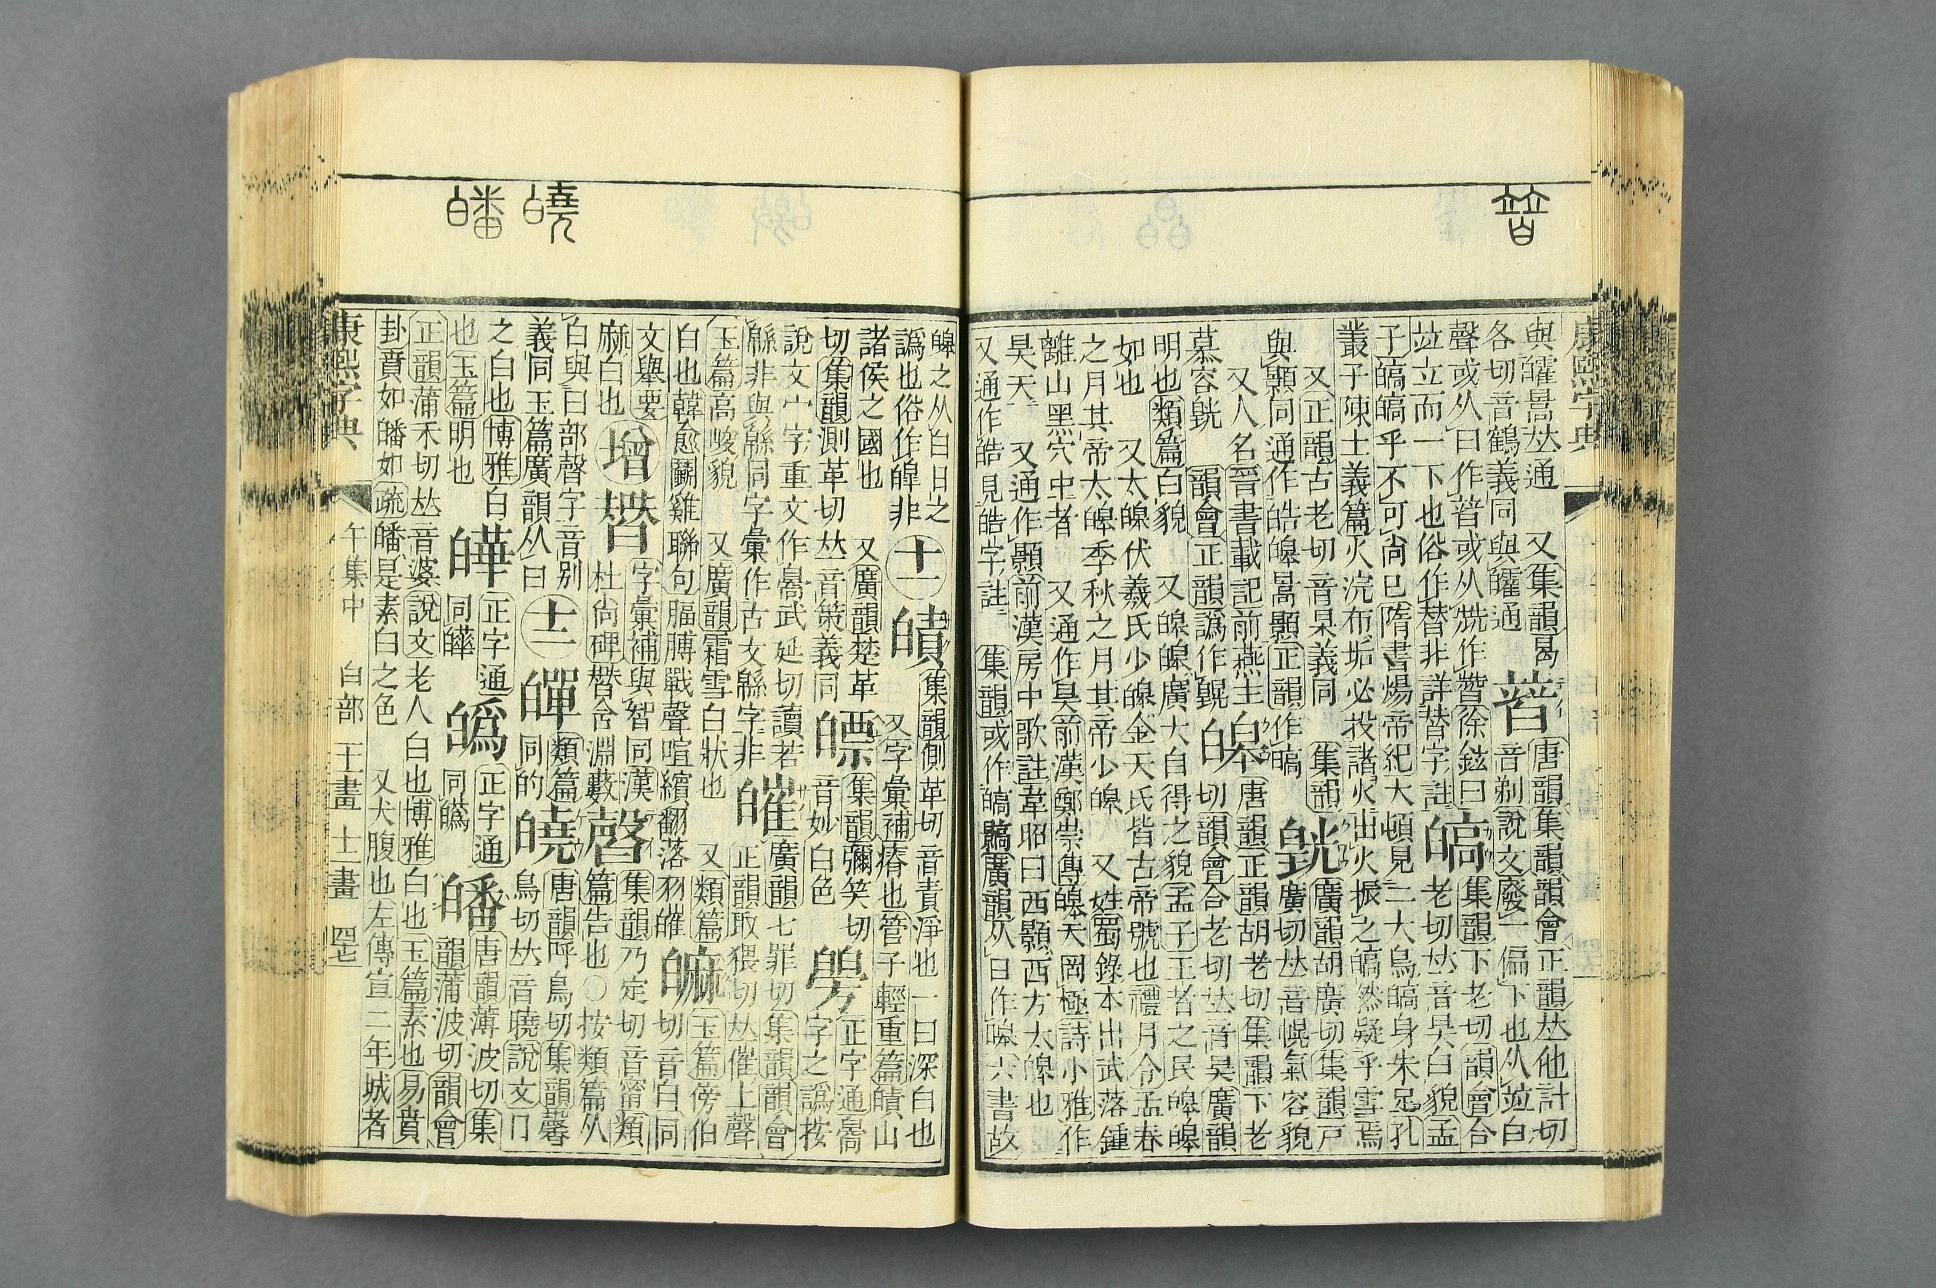 暜
與皬暠𠀤通　又集韻曷
各切音鶴義同與皬通
暜
唐韻集韻韻會正韻𠀤他計切
音剃說文廢一偏下也从竝白
聲或从曰作朁或从兟作㬱徐鉉曰
竝立而一下也俗作替非詳替字註
皜
集韻下老切韻會合
老切𠀤音昊白貌孟
子皜皜乎不可尙已隋書煬帝紀大頓見二大鳥皜身朱足孔
叢子陳士義篇火浣布垢必投諸火出火振之皜然疑乎雪焉
又正韻古老切音杲義同　集韻
與顥同通作皓皞暠顥正韻作皜
皝
廣韻胡廣切集韻戸
廣切𠀤音幌氣容貌
又人名晉書載記前燕主
慕容皝　韻會正韻譌作皩
皞
唐韻正韻胡老切集韻下老
切韻會合老切𠀤音昊廣韻
明也類篇白貌　又皞皞廣大自得之貌孟子王者之民皞皞
如也　又太皞伏羲氏少皞金天氏皆古帝號也禮月令孟春
之月其帝太皞季秋之月其帝少皞　又姓蜀錄本出武落鍾
離山黑穴中者　又通作昊前漢鄭崇傳皞天罔極詩小雅作
昊天　又通作顥前漢房中歌註韋昭曰西顥西方太皞也
又通作皓見皓字註　集韻或作皜廣韻从日作暤六書故
皢　皤
皞之从白日之
譌也俗作皡非
十一
皟
集韻側革切音責淨也一曰深白也
又字彙補瘠也管子輕重篇皟山
諸侯之國也　又廣韻楚革
切集韻測革切𠀤音策義同
集韻彌笑切
音妙白色
正字通臱
字之譌按
說文宀字重文作臱武延切讀若
緜非與緜同字彙作古文緜字非
皠
廣韻七罪切集韻韻會
正韻取猥切𠀤催上聲
玉篇高峻貌　又廣韻霜雪白狀也　又類篇
白也韓愈鬭雞聯句腷膊戰聲喧繽翻落羽皠
玉篇傍伯
切音白同
文舉要
麻白也
增
字彙補與智同漢
杜尙碑含淵藪
集韻乃定切音甯類
篇告也〇按類篇从
白與曰部聲字音别
義同玉篇廣韻从曰
十二
類篇
同的
皢
唐韻呼鳥切集韻馨
鳥切𠀤音曉說文日
之白也博雅白
也玉篇明也
皣
正字通
同
正字通
同
皤
唐韻薄波切集
韻蒲波切韻會
正韻蒲禾切𠀤音婆說文老人白也博雅白也玉篇素也易賁
卦賁如皤如疏皤是素白之色　又犬腹也左傳宣二年城者
康熙字典　午集中　白部　十一畫　十二畫　四七